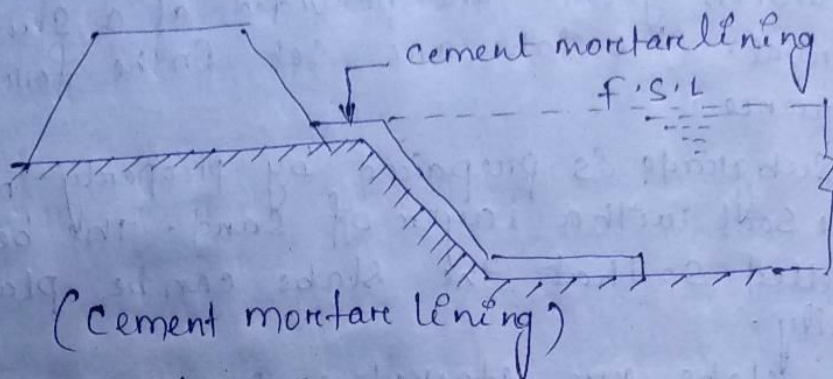 cement moretare lining
F.S.L
(cement moretare lining)